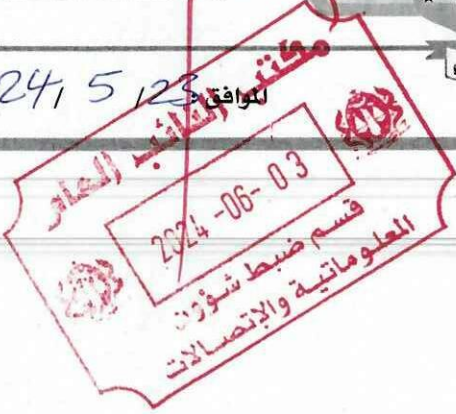 الموافق 24, 5, 23
مكتب النائب العام
2024-06-03
قسم ضبط شؤون
المعلوماتية والإتصالات